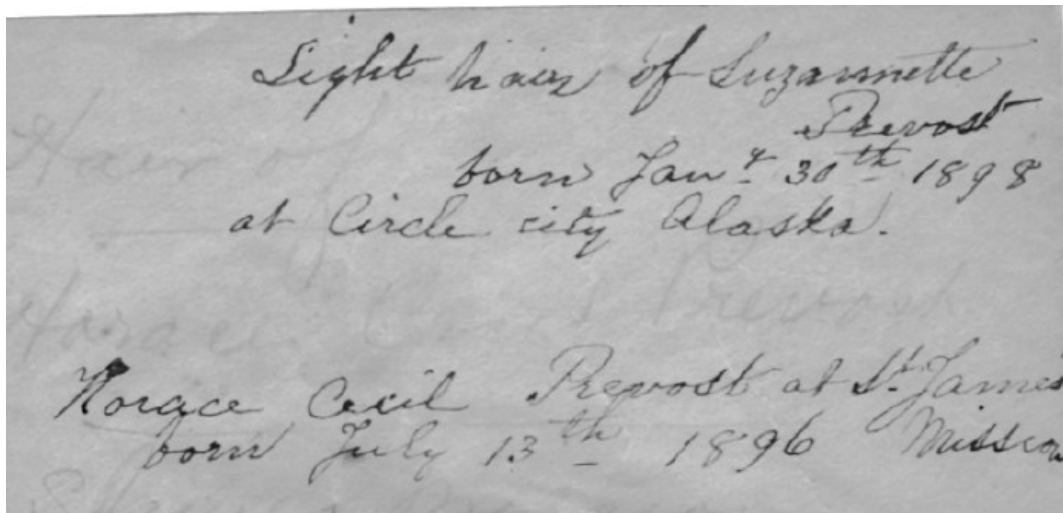 Light hair of Suzannette
Prevost
born Jany 30th 1898
at Circle city Alaska.
Hair of
Horace Cecil Prevost
Horace Cecil Prevost at St. James
born July 13th 1896 Mission